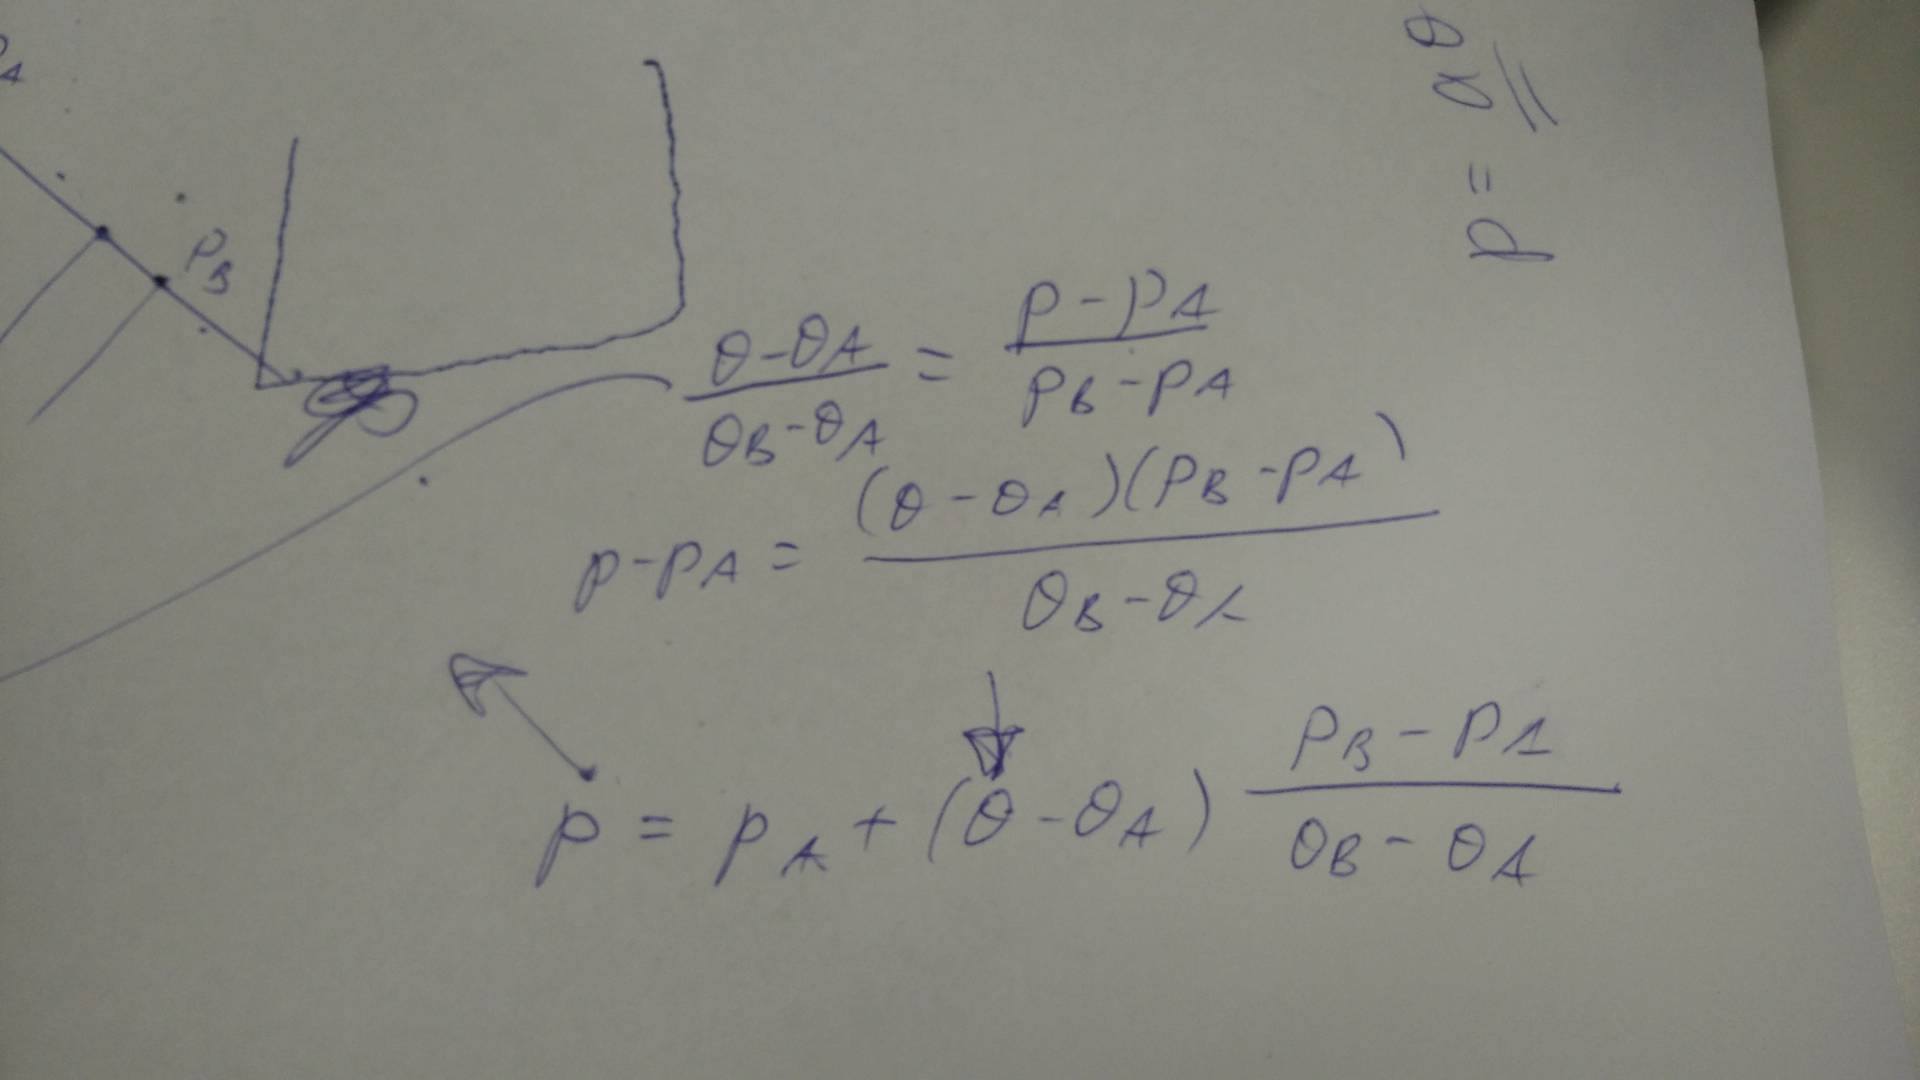 P_B
p = aθ
(θ - θ_A) / (θ_B - θ_A) = (p - p_A) / (p_B - p_A)
p - p_A = (θ - θ_A)(p_B - p_A) / (θ_B - θ_A)
p = p_A + (θ - θ_A) (p_B - p_A) / (θ_B - θ_A)